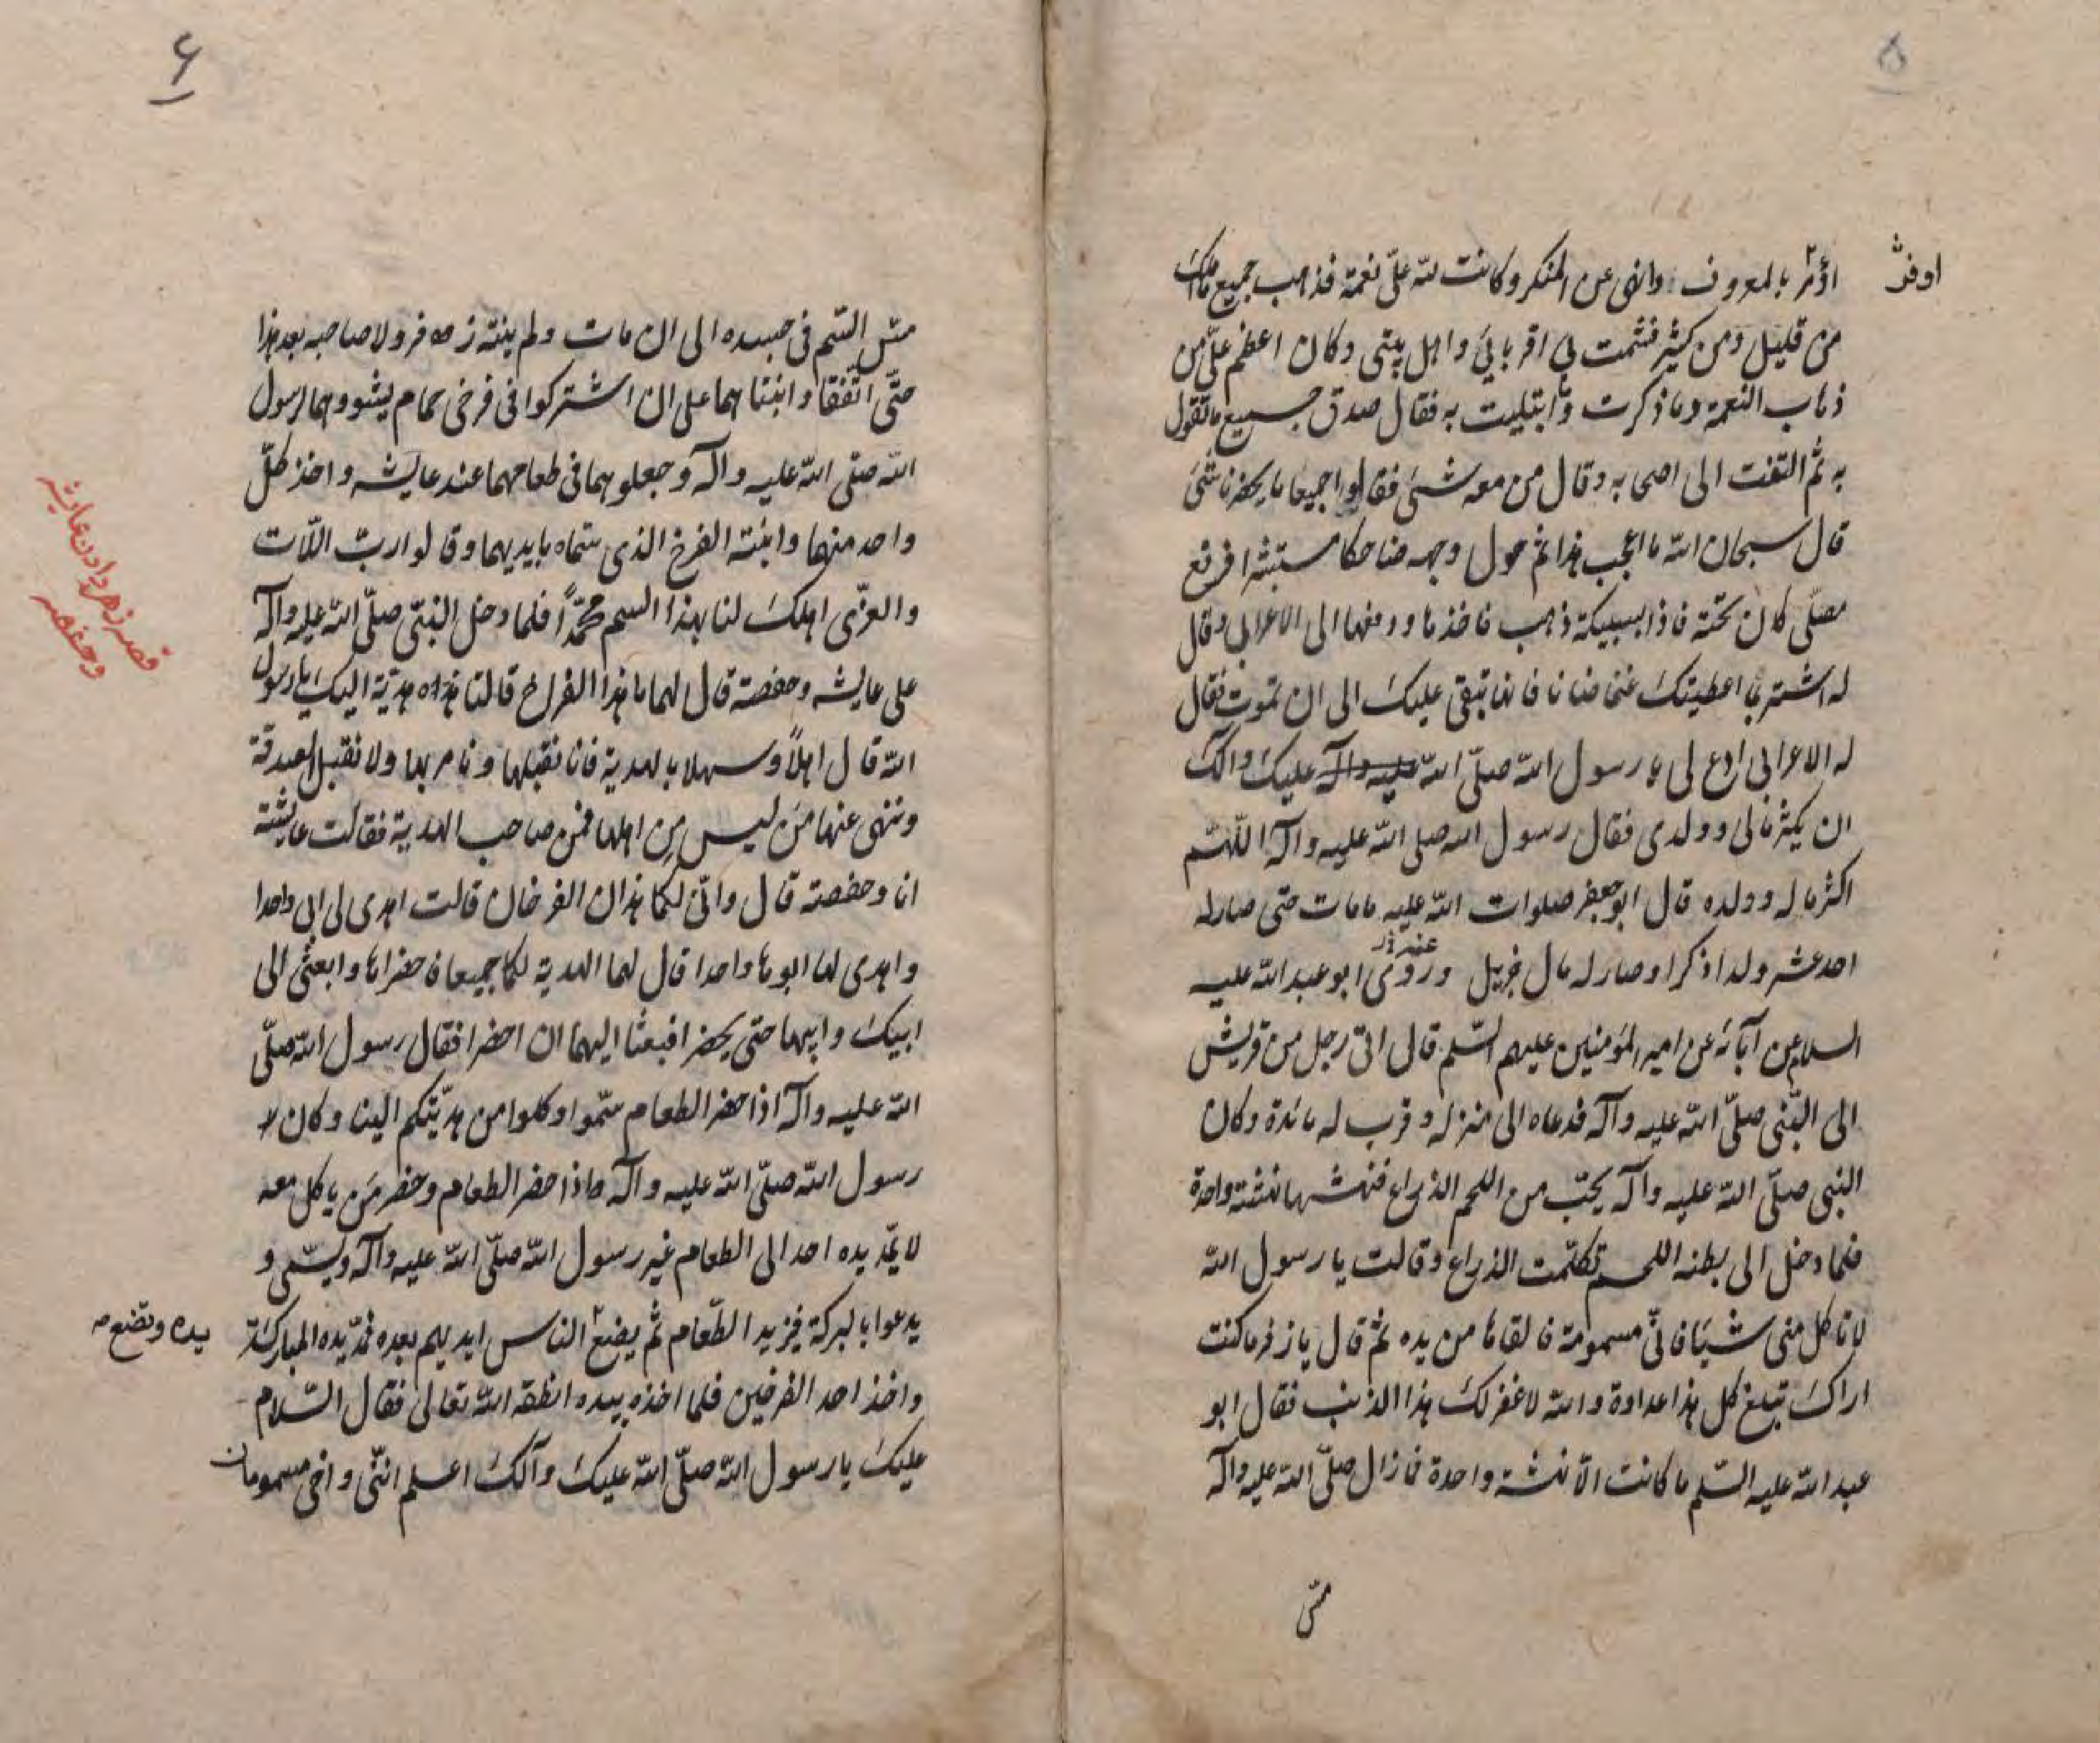 ۵
اوفدت
اؤمر بالمعروف وانهى عن المنكر وكانت لله علىّ نعمة فذهب جميع ما املك
من قليل ومن كثير فشمت بي اقربائي واهل بيتى وكان اعظم علىّ من
ذهاب النعمة وما ذكرت وابتليت به فقال صدق جميع ما تقول
به ثم التفت الى اصحابه وقال من معه شئ فقالوا جميعا ما يحضرنا شئ
قال سبحان الله ما اعجب هذا ثم حول وجهه ضاحكا مستبشرا فرفع
مصلّى كان تحته فاذا بسبيكة ذهب فاخذها ودفعها الى الاعرابى وقال
له اشتر بما اعطيتك غنما ضانا فانها تبقى عليك الى ان تموت فقال
له الاعرابى ادع لى يا رسول الله صلّى الله عليه وآله عليك وآلك
ان يكثر مالى وولدى فقال رسول الله صلى الله عليه وآله اللّهم
اكثر ماله وولده قال ابو جعفر صلوات الله عليه مامات حتى صار له
احد عشر ولدا ذكرا وصار له مال جزيل وروى ابو عبد الله عليه
السلام عن آبائه عن امير المؤمنين عليهم السّلم قال اتى رجل من قريش
الى النّبى صلّى الله عليه وآله فدعاه الى منزله وقرب له مائدة وكان
النبى صلّى الله عليه وآله يحبّ من اللحم الذراع فنهشها نهشة واحدة
فلما دخل الى بطنه اللحم تكلّمت الذراع وقالت يا رسول الله
لا تاكل منى شيئا فانّى مسمومة فالقاها من يده ثم قال يا زفر ما كنت
اراك تبلغ كل هذا عداوة والله لا غفر لك هذا الذنب فقال ابو
عبد الله عليه السّلم ما كانت الّا نهشة واحدة فما زال صلّى الله عليه وآله
۶
مسّ السّم فى جسده الى ان مات ولم ينته زفر ولا صاحبه بعد هذا
حتّى اتّفقا وابنتاهما على ان اشتركوا فى فرخى حمام يشووهما لرسول
الله صلّى الله عليه وآله وجعلوهما فى طعامهما عند عايشه واخذ كلّ
واحد منهما وابنته الفرخ الذى سمّاه بايديهما وقالوا ربّ اللّات
والعزّى اهلك لنا بهذا السم محمّداً فلما دخل النبّى صلّى الله عليه وآله
على عايشه وحفصة قال لهما ما هذا الفراخ قالتا هذه هديّة اليك يا رسول
الله قال اهلاً وسهلا بالهدية فانا نقبلها ونامر بها ولا نقبل الصدقة
وننهى عنها مَن ليس مِن اهلها فمن صاحب الهدية فقالت عايشة
انا وحفصة قال وانّى لكما هذان الفرخان قالت اهدى لى ابى واحدا
واهدى لها ابوها واحدا قال لهما الهدية لكما جميعا فاحضراها وابعثى الى
ابيك وابيها حتى يحضرا فبعثا اليهما ان احضرا فقال رسول الله صلّى
الله عليه وآله اذا حضر الطعام سمّوا وكلوا من هديّتكم الينا وكان لا
رسول الله صلّى الله عليه وآله واذا حضر الطعام وحضر مَن ياكل معه
لا يمّد يده احد الى الطعام غير رسول الله صلّى الله عليه وآله ويسّمى و
يدعوا بالبركة فيزيد الطّعام ثم يضع الناس ايديهم بعده فمدّ يده المباركة
يده وتضع
واخذ احد الفرخين فلما اخذه بيده انطقه الله تعالى فقال السّلام
عليك يا رسول الله صلّى الله عليك وآلك اعلم انّنى واخى مسمومان
قصه زهر دادن عايشه
و حفصه
مسّ